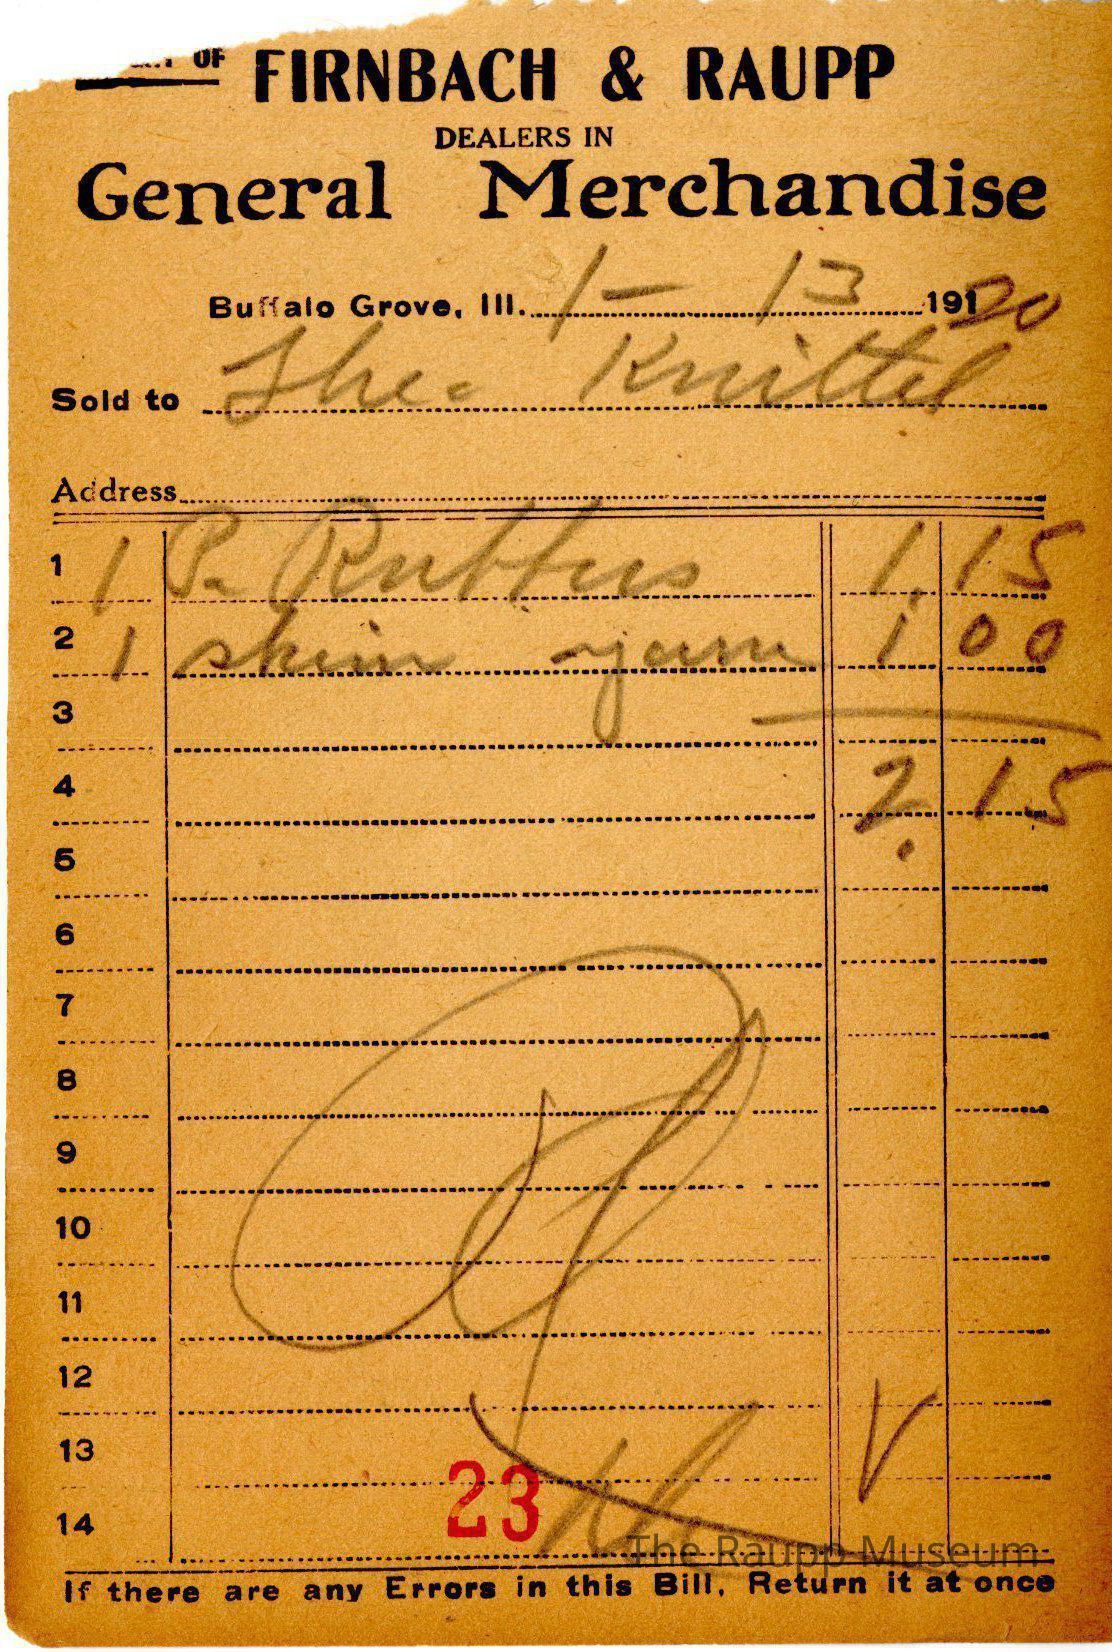 OF FIRNBACH & RAUPP
DEALERS IN
General Merchandise
Buffalo Grove, Ill. 1 - 13 19120
Sold to The. Knittel
Address
1 1 P. Rubbers 1.15
2 1 skein yarn 1 00
3
4 2.15
5
6
7
8
9
10
11
12
13
23
14
The Raupp Museum
If there are any Errors in this Bill, Return it at once